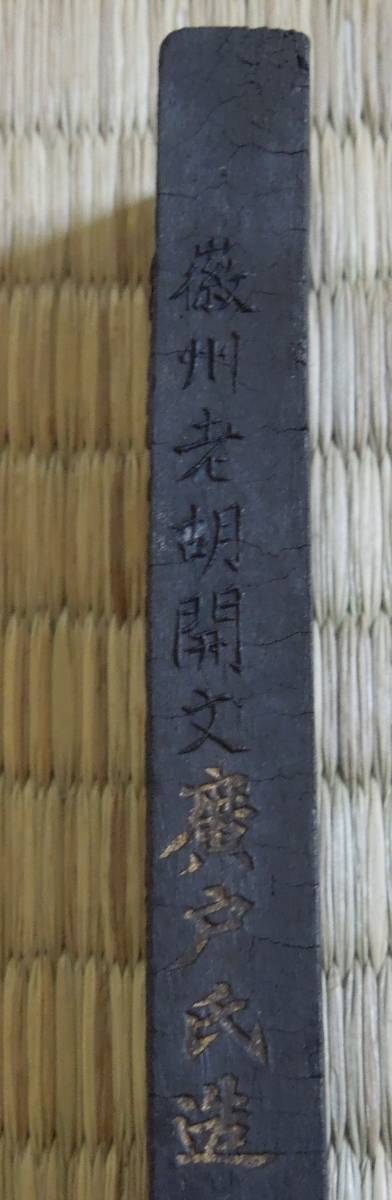 徽州老胡開文廣户氏造